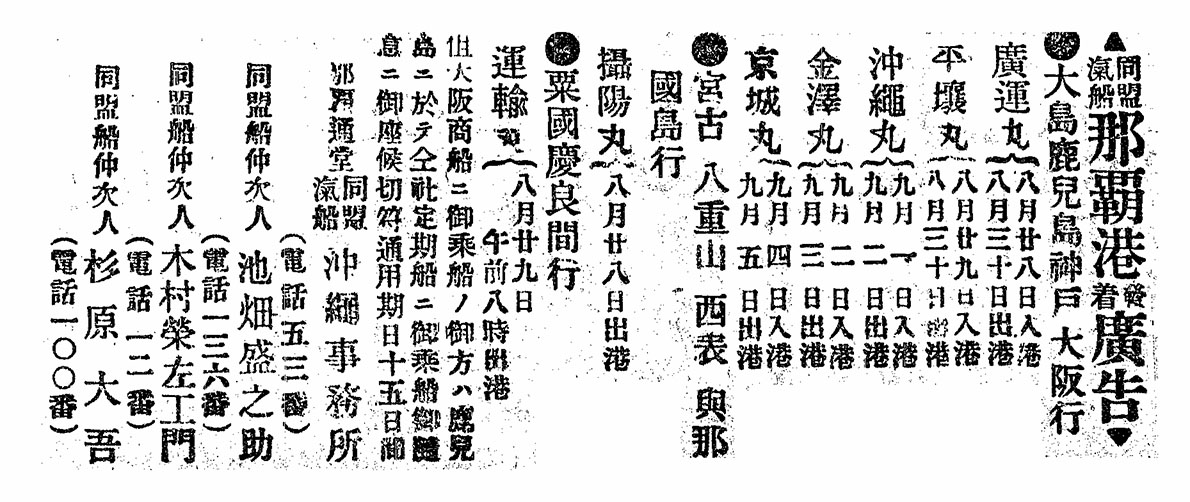 ▲同盟汽船那覇港發着廣告▼
●大島鹿兒島神戸大阪行
廣運丸 八月廿八日入港
八月三十日出港
平壤丸 八月廿九日入港
八月三十日出港
沖繩丸 九月一日入港
九月二日出港
金澤丸 九月二日入港
九月三日出港
京城丸 九月四日入港
九月五日出港
●宮古 八重山 西表 與那
國島行
攝陽丸 八月廿八日出港
●粟國慶良間行
運輸丸 八月廿九日
午前八時出港
但大阪商船ニ御乘船ノ御方ハ鹿兒
島ニ於テ仝社定期船ニ御乘船御隨
意ニ御座候切符通用期日十五日間
那覇通堂 同盟汽船 沖繩事務所
(電話五三番)
同盟船仲次人 池畑盛之助
(電話一三六番)
同盟船仲次人 木村榮左工門
(電話一二番)
同盟船仲次人 杉原大吾
(電話一〇〇番)